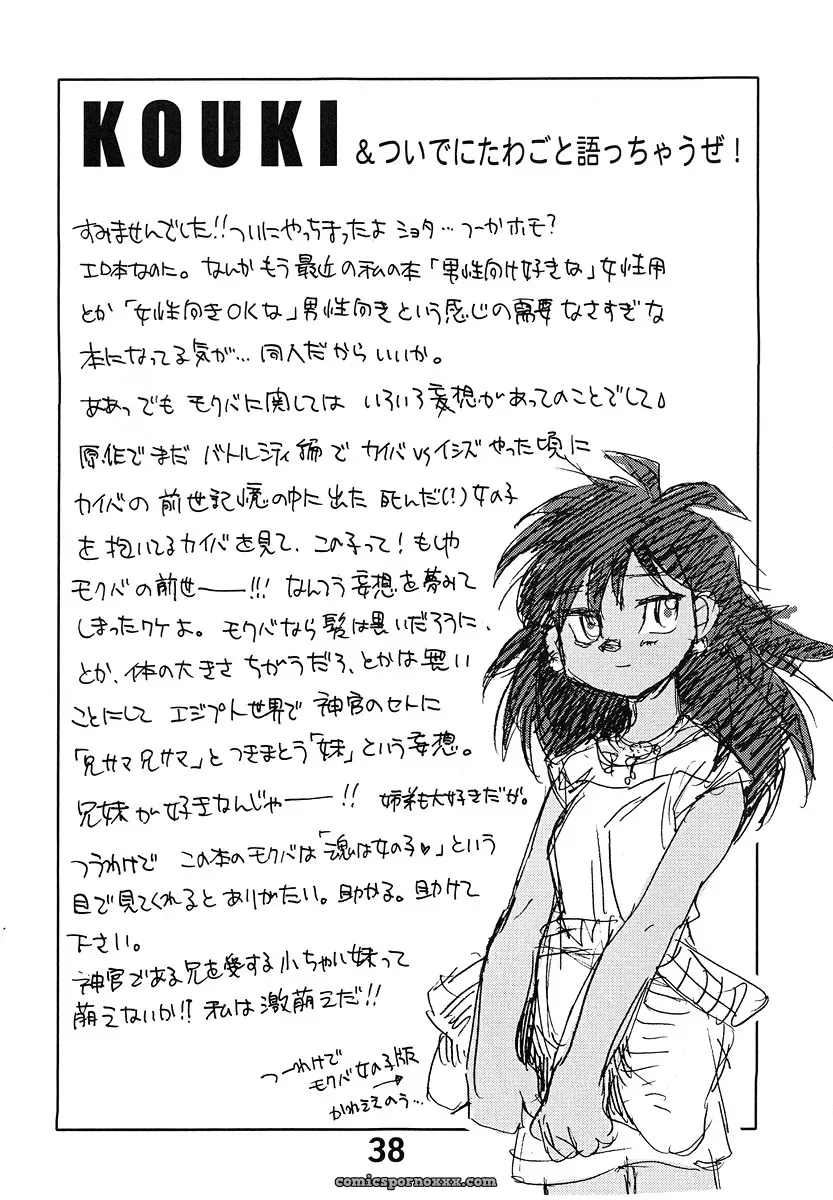 KOUKI &ついでにたわごと語っちゃうぜ!
すみませんでした!!ついにやっちまったよ ショタ…つーかホモ?
エロ本なのに。なんかもう最近の私の本「男性向け好きな」女性用
とか「女性向きOKな」男性向きという感じの需要なさすぎな
本になってる気が…同人だからいいか。
ああっでも モクバに関しては いろいろ妄想があってのことでして
原作でまだ バトルシティ編で カイバvsイシズやった頃に
カイバの前世記憶の中に出た 死んだ(!)女の子
を抱いてるカイバを見て、この子って!もしや
モクバの前世――!!! なんつう妄想を夢みて
しまったワケよ。モクバなら髪は黒いだろうに、
とか、体の大きさ ちがうだろ、とかは 悪い
ことにして エジプト世界で 神官のセトに
「兄サマ兄サマ」と つきまとう「妹」という妄想。
兄妹が好きなんじゃ――!! 姉弟も大好きだが。
つうわけで この本のモクバは「魂は女の子♥」という
目で見てくれると ありがたい。助かる。助けて
下さい。
神官である兄を愛する小ちゃい妹って
萌えないか!? 私は激萌えだ!!
つーわけで
モクバ女の子版
→
かわええのう…
38
comicspornoxxx.com